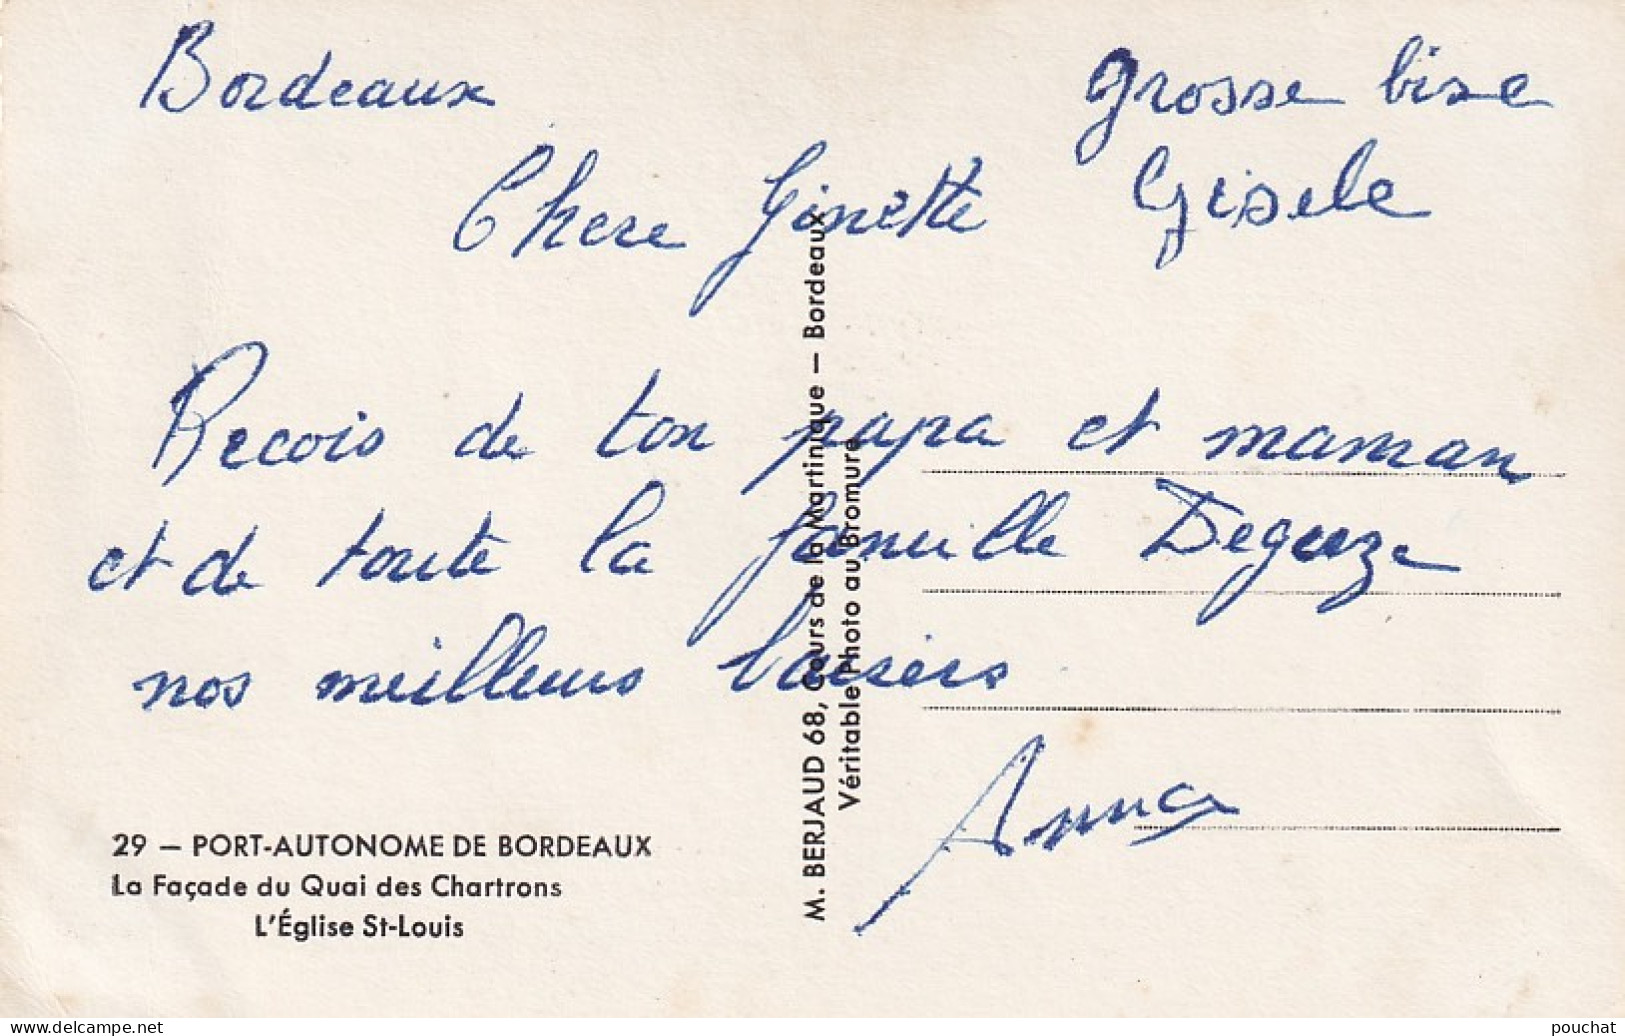 Bordeaux
grosse bise
Gisele
Chere Ginette
Recois de ton papa et maman
et de toute la famille Deguze
nos meilleurs baisers
Anna
29 — PORT-AUTONOME DE BORDEAUX
La Façade du Quai des Chartrons
L'Église St-Louis
M. BERJAUD 68, Cours de la Martinique — Bordeaux
Véritable Photo au Bromure
www.delcampe.net
pouchat